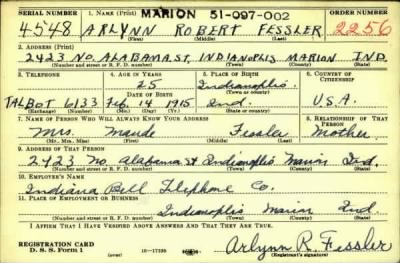 SERIAL NUMBER 1. NAME (Print) MARION 51-097-002 ORDER NUMBER
4548 ARLYNN ROBERT FESSLER 2256
(First) (Middle) (Last)
2. ADDRESS (Print)
2423 NO. ALABAMA ST, INDIANOPLIS MARION IND.
(Number and street or R. F. D. number) (Town) (County) (State)
3. TELEPHONE 4. AGE IN YEARS 5. PLACE OF BIRTH 6. COUNTRY OF CITIZENSHIP
25 Indianoplis
DATE OF BIRTH (Town or county)
TALBOT 6133 Feb. 14 1915 Ind. U.S.A.
(Exchange) (Number) (Mo.) (Day) (Yr.) (State or country)
7. NAME OF PERSON WHO WILL ALWAYS KNOW YOUR ADDRESS 8. RELATIONSHIP OF THAT PERSON
Mrs. Maude Fessler Mother
(Mr., Mrs., Miss) (First) (Middle) (Last)
9. ADDRESS OF THAT PERSON
2423 No. Alabama St Indianoplis Marion Ind.
(Number and street or R. F. D. number) (Town) (County) (State)
10. EMPLOYER'S NAME
Indiana Bell Telephone Co.
11. PLACE OF EMPLOYMENT OR BUSINESS
Indianoplis Marion Ind.
(Number and street or R. F. D. number) (Town) (County) (State)
I AFFIRM THAT I HAVE VERIFIED ABOVE ANSWERS AND THAT THEY ARE TRUE.
REGISTRATION CARD
D. S. S. Form 1 Arlynn R. Fessler
(Registrant's signature)